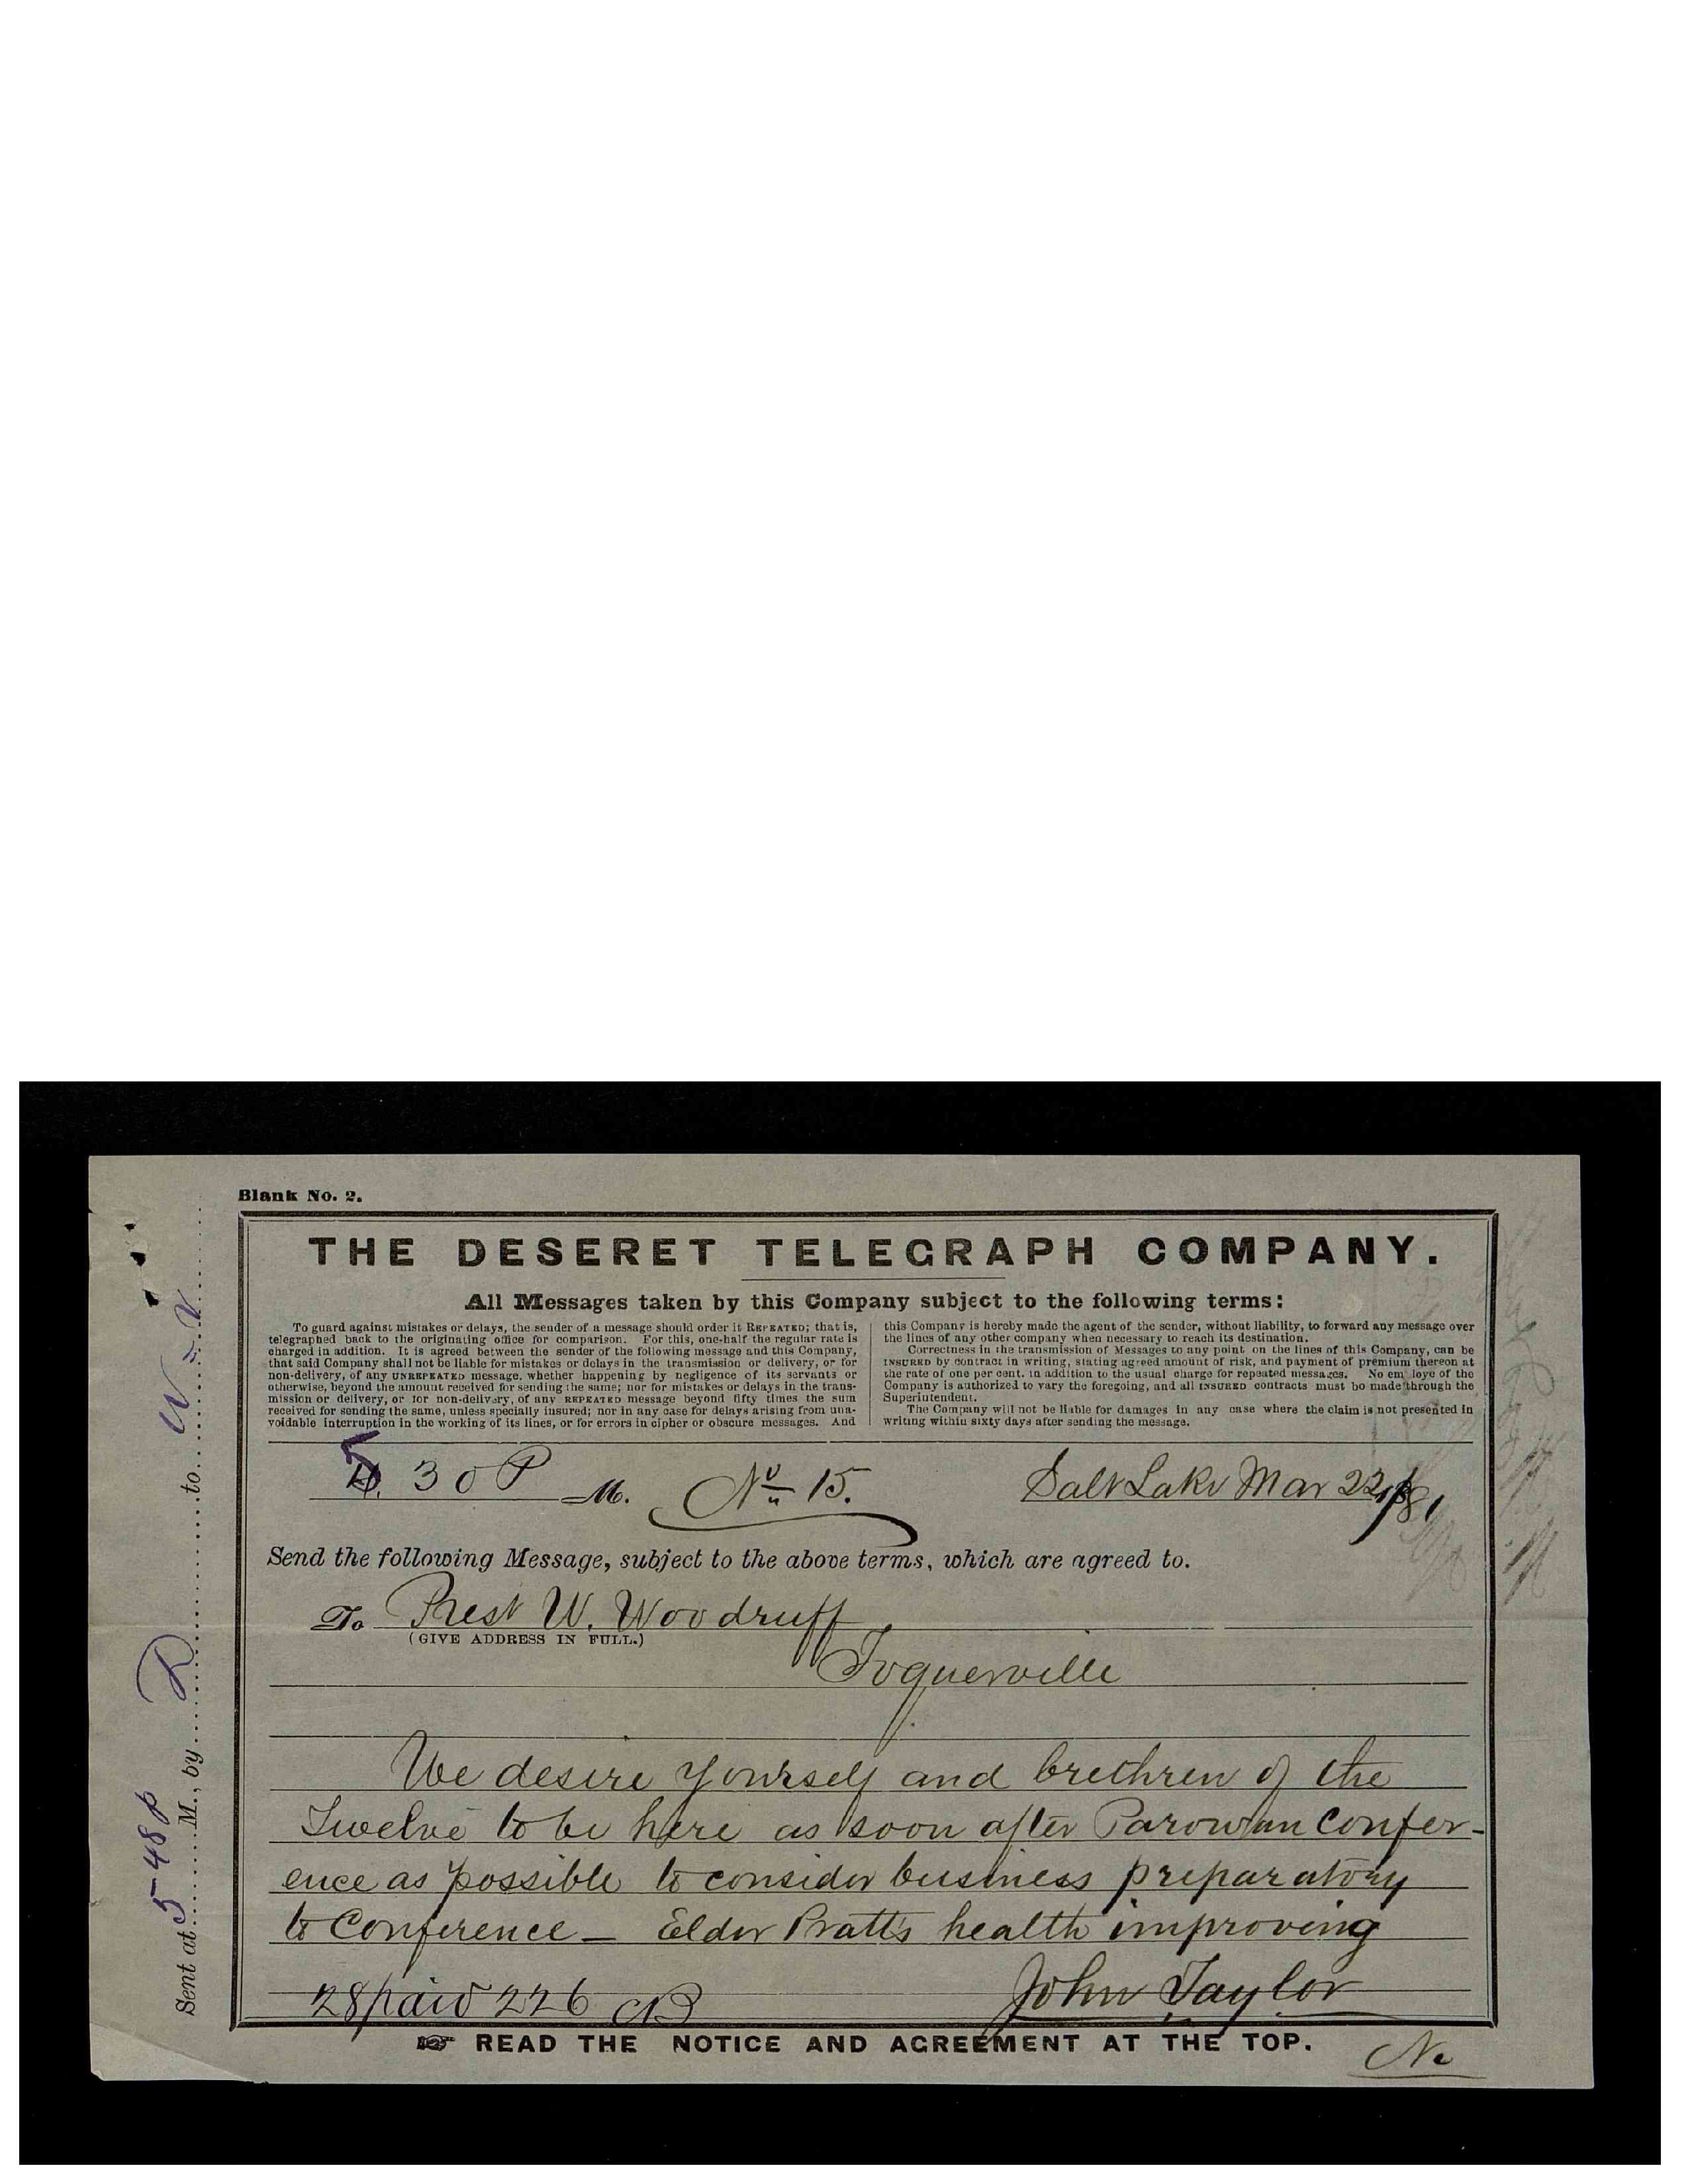 Blank No. 2.
THE DESERET TELEGRAPH COMPANY.
All Messages taken by this Company subject to the following terms:
To guard against mistakes or delays, the sender of a message should order it REPEATED; that is,
telegraphed back to the originating office for comparison. For this, one-half the regular rate is
charged in addition. It is agreed between the sender of the following message and this Company,
that said Company shall not be liable for mistakes or delays in the transmission or delivery, or for
non-delivery, of any UNREPEATED message, whether happening by negligence of its servants or
otherwise, beyond the amount received for sending the same; nor for mistakes or delays in the trans-
mission or delivery, or for non-delivery, of any REPEATED message beyond fifty times the sum
received for sending the same, unless specially insured; nor in any case for delays arising from una-
voidable interruption in the working of its lines, or for errors in cipher or obscure messages. And
this Company is hereby made the agent of the sender, without liability, to forward any message over
the lines of any other company when necessary to reach its destination.
Correctness in the transmission of Messages to any point on the lines of this Company, can be
INSURED by contract in writing, stating agreed amount of risk, and payment of premium thereon at
the rate of one per cent. in addition to the usual charge for repeated messages. No em loye of the
Company is authorized to vary the foregoing, and all INSURED contracts must be made through the
Superintendent.
The Company will not be liable for damages in any case where the claim is not presented in
writing within sixty days after sending the message.
5.30 P M. No 15. Salt Lake Mar 22 1881
Send the following Message, subject to the above terms, which are agreed to.
To Prest W. Woodruff
(GIVE ADDRESS IN FULL.)
Toquerville
We desire yourself and brethren of the
Twelve to be here as soon after Parowan Confer-
ence as possible to consider business preparatory
to Conference — Elder Pratt's health improving
28 paid 226 John Taylor
READ THE NOTICE AND AGREEMENT AT THE TOP.
Sent at 5 48 p M., by D to